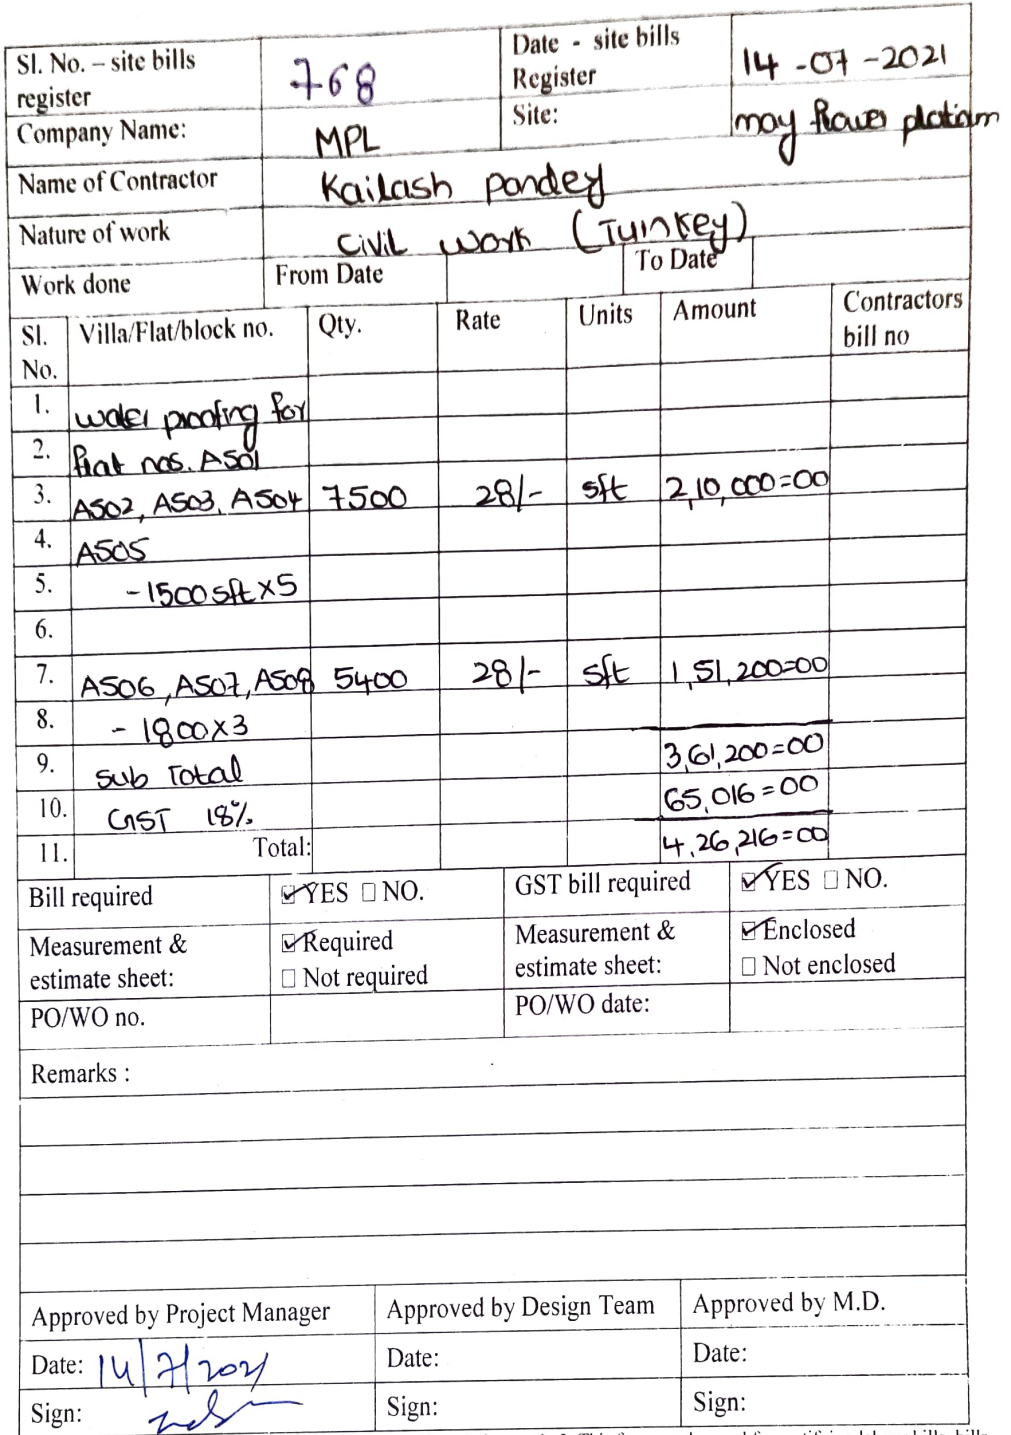 Sl. No. – site bills register 768 Date - site bills Register 14-07-2021
Company Name: MPL Site: may flower platiam
Name of Contractor Kailash pandey
Nature of work civil work (Turnkey)
Work done From Date To Date
Sl. No. Villa/Flat/block no. Qty. Rate Units Amount Contractors bill no
1. water proofing for
2. flat nos. A501
3. A502, A503, A504 7500 28/- sft 2,10,000=00
4. A505
5. -1500 sft x5
6.
7. A506, A507, A508 5400 28/- sft 1,51,200=00
8. - 1800x3
9. sub Total 3,61,200=00
10. GST 18% 65,016=00
11. Total: 4,26,216=00
Bill required YES NO. GST bill required YES NO.
Measurement & estimate sheet: Required Not required Measurement & estimate sheet: Enclosed Not enclosed
PO/WO no. PO/WO date:
Remarks :
Approved by Project Manager Approved by Design Team Approved by M.D.
Date: 14/7/2021 Date: Date:
Sign: Sign: Sign: